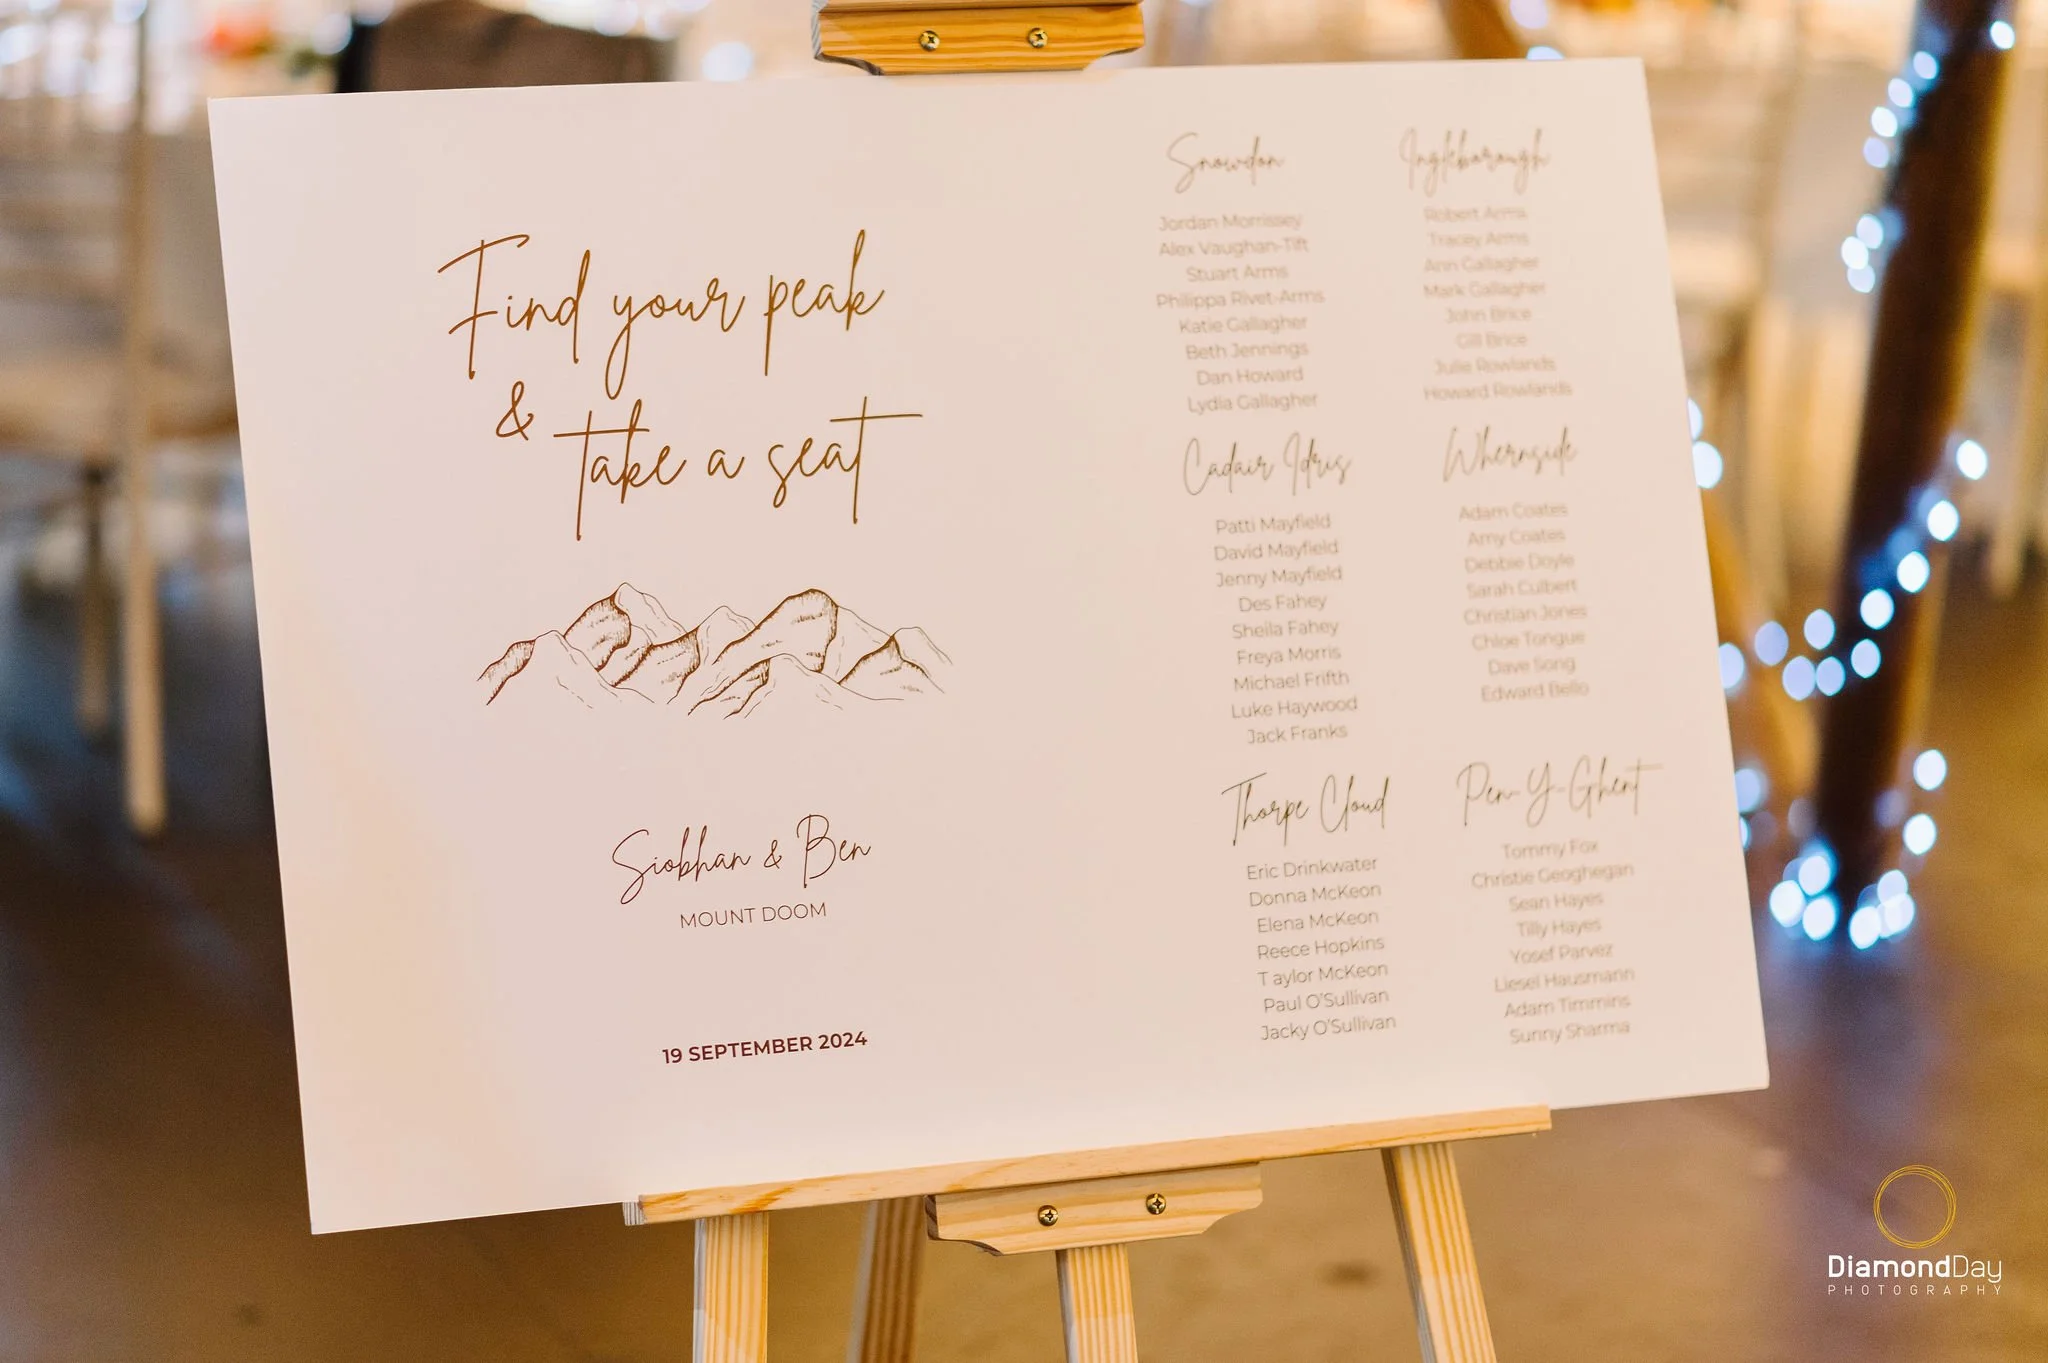 Find your peak
& take a seat
Siobhan & Ben
MOUNT DOOM
19 SEPTEMBER 2024
Snowdon
Jordan Morrissey
Alex Vaughan-Tift
Stuart Arms
Philippa Rivet-Arms
Katie Gallagher
Beth Jennings
Dan Howard
Lydia Gallagher
Ingleborough
Robert Arms
Tracey Arms
Ann Gallagher
Mark Gallagher
John Brice
Gill Brice
Julie Rowlands
Howard Rowlands
Cadair Idris
Patti Mayfield
David Mayfield
Jenny Mayfield
Des Fahey
Sheila Fahey
Freya Morris
Michael Frifth
Luke Haywood
Jack Franks
Whernside
Adam Coates
Amy Coates
Debbie Doyle
Sarah Culbert
Christian Jones
Chloe Tongue
Dave Song
Edward Bello
Thorpe Cloud
Eric Drinkwater
Donna McKeon
Elena McKeon
Reece Hopkins
T aylor McKeon
Paul O'Sullivan
Jacky O'Sullivan
Pen-Y-Ghent
Tommy Fox
Christie Geoghegan
Sean Hayes
Tilly Hayes
Yosef Parvez
Liesel Hausmann
Adam Timmins
Sunny Sharma
DiamondDay
PHOTOGRAPHY